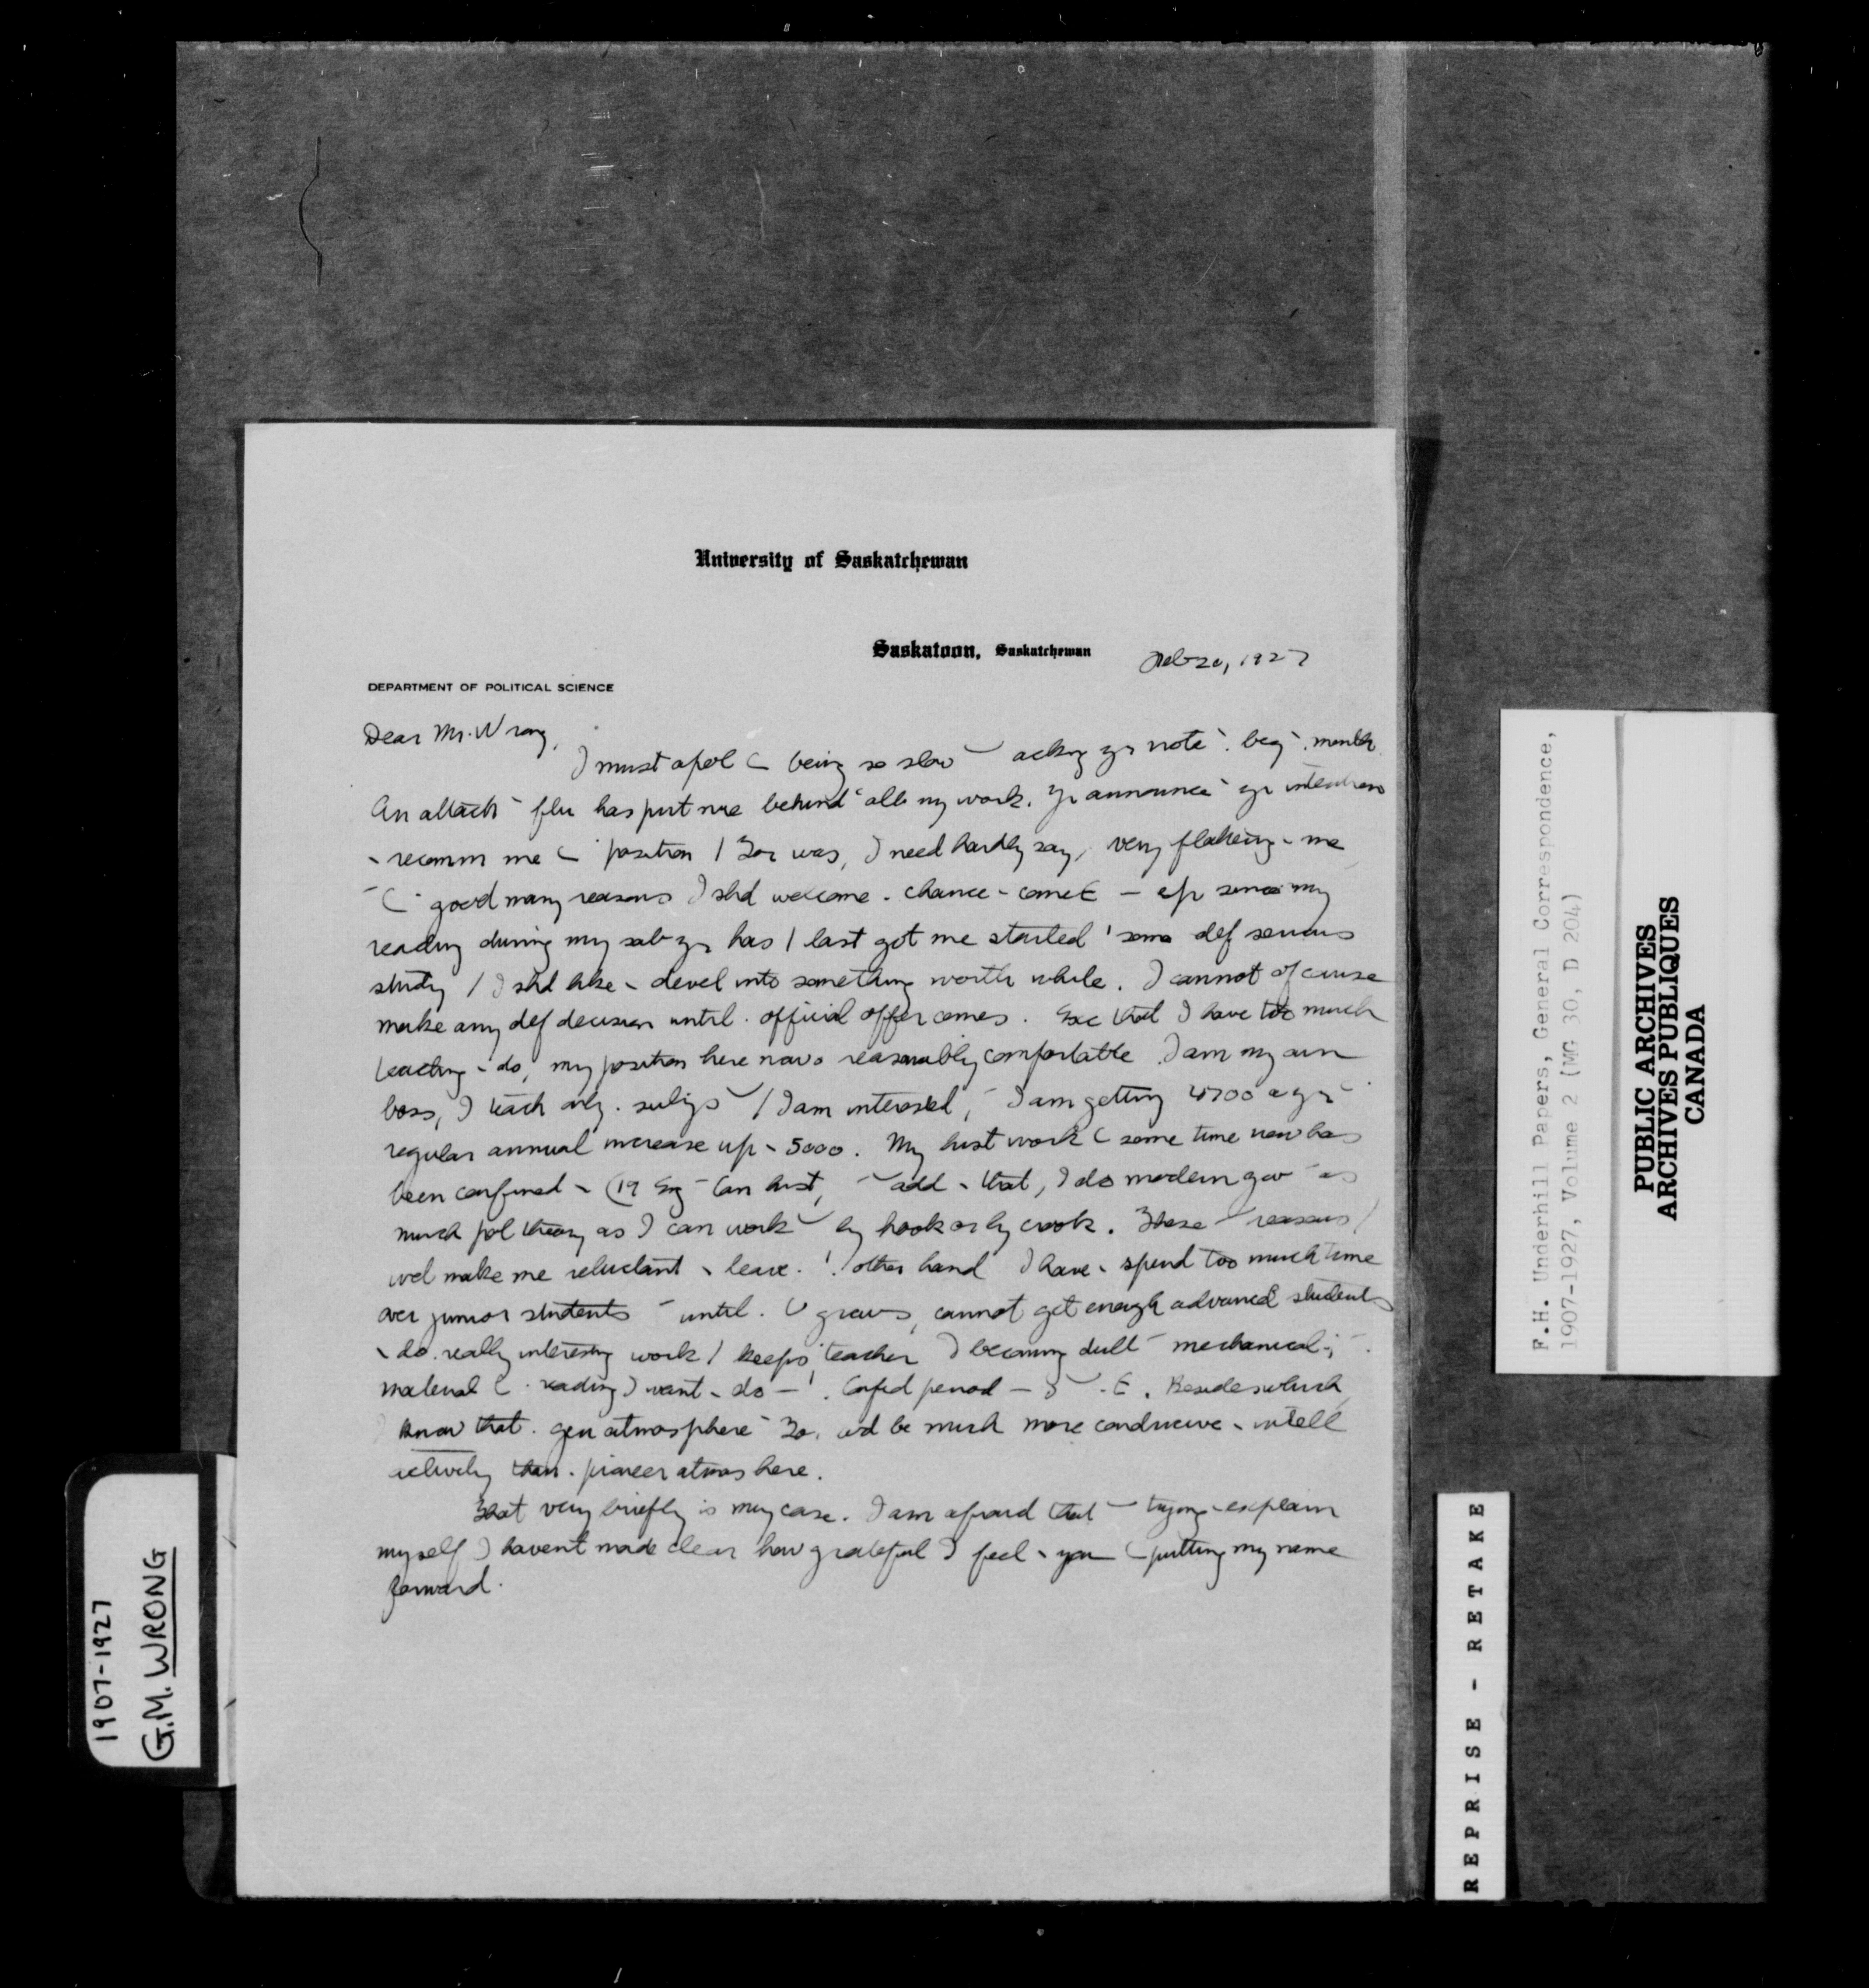 University of Saskatchewan
Saskatoon, Saskatchewan Feb 20, 1927
DEPARTMENT OF POLITICAL SCIENCE
Dear Mr. Wrong,
I must apol being so slow ackng yr note beg. month
An attack flu has put me behind all my work. Yr announce yr intentions
recomm me position Tor was, I need hardly say, very flattering me
good many reasons I shd welcome. chance come E — esp since my
reading during my sab yr has last got me started some def serious
study I shd like devel into something worth while. I cannot of course
make any def decision until. official offer comes. Exc that I have too much
teaching do, my position here now is reasonably comfortable. I am my own
boss, I teach only. subjs I am interested, I am getting 4700 a yr
regular annual increase up 5000. My hist work some time now has
been confined (19 Eng Can hist, add that, I do modern gov as
much pol theory as I can work by hook or by crook. These reasons
wd make me reluctant leave. other hand I have spend too much time
over junior students until. U grows, cannot get enough advanced students
do. really interesting work keeps teacher becoming dull mechanical;
material reading I want do — Confed period — E. Besides which
I know that. gen atmosphere To. wd be much more conducive intell
activity than. pioneer atmos here.
That very briefly is my case. I am afraid that trying explain
myself I havent made clear how grateful I feel you putting my name
forward.
1907-1927
G.M. WRONG
F.H. Underhill Papers, General Correspondence,
1907-1927, Volume 2 (MG 30, D 204)
PUBLIC ARCHIVES
ARCHIVES PUBLIQUES
CANADA
REPRISE - RETAKE